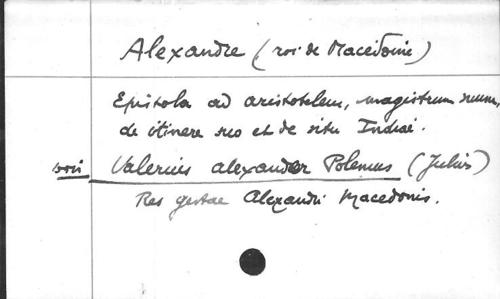 Alexandre (roi de Macédoine)
Epistola ad aristotelem, magistrum suum,
de itinere suo et de situ Indiae.
voir Valerius alexander Polemus (Julius)
Res gestae Alexandri Macedonis.